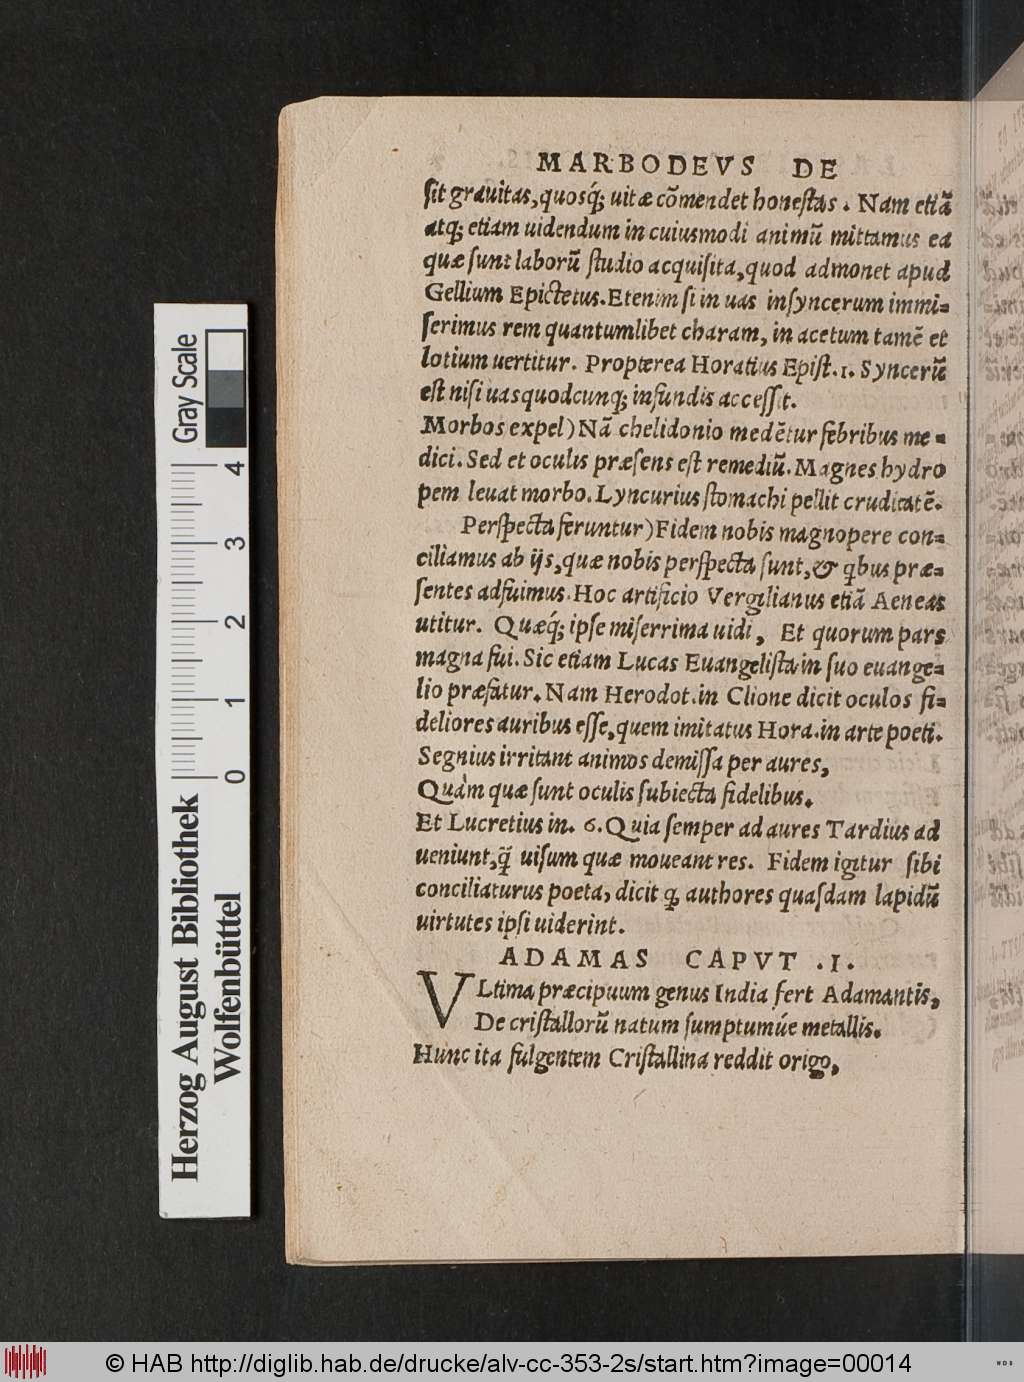 MARBODEVS DE
ſit grauitas, quosq́; uitæ cõmendet honeſtas. Nam etiã
atq; etiam uidendum in cuiusmodi animũ mittamus ea
quæ ſunt laborũ ſtudio acquiſita, quod admonet apud
Gellium Epictetus. Etenim ſi in uas inſyncerum immi=
ſerimus rem quantumlibet charam, in acetum tamẽ et
lotium uertitur. Propterea Horatius Epiſt. 1. Syncerũ
eſt niſi uas quodcunq; infundis acceſſit.
Morbos expel) Nã chelidonio medẽtur febribus me=
dici. Sed et oculis præſens eſt remediũ. Magnes hydro
pem leuat morbo. Lyncurius ſtomachi pellit cruditatẽ.
Perſpecta feruntur) Fidem nobis magnopere con=
ciliamus ab ijs, quæ nobis perſpecta ſunt, & qbus præ=
ſentes adfuimus. Hoc artificio Vergilianus etiã Aeneas
utitur. Quæq́; ipſe miſerrima uidi, Et quorum pars
magna fui. Sic etiam Lucas Euangeliſta in ſuo euange=
lio præfatur. Nam Herodot. in Clione dicit oculos fi=
deliores auribus eſſe, quem imitatus Hora. in arte poeti.
Segnius irritant animos demiſſa per aures,
Quàm quæ ſunt oculis ſubiecta fidelibus.
Et Lucretius in. 6. Quia ſemper ad aures Tardius ad
ueniunt, q̃ uiſum quæ moueant res. Fidem igitur ſibi
conciliaturus poeta, dicit q; authores quaſdam lapidũ
uirtutes ipſi uiderint.
ADAMAS CAPVT .I.
VLtima præcipuum genus India fert Adamantis,
De criſtallorũ natum ſumptumúe metallis.
Hunc ita fulgentem Criſtallina reddit origo,
Gray Scale
4
3
2
1
0
Herzog August Bibliothek
Wolfenbüttel
© HAB http://diglib.hab.de/drucke/alv-cc-353-2s/start.htm?image=00014